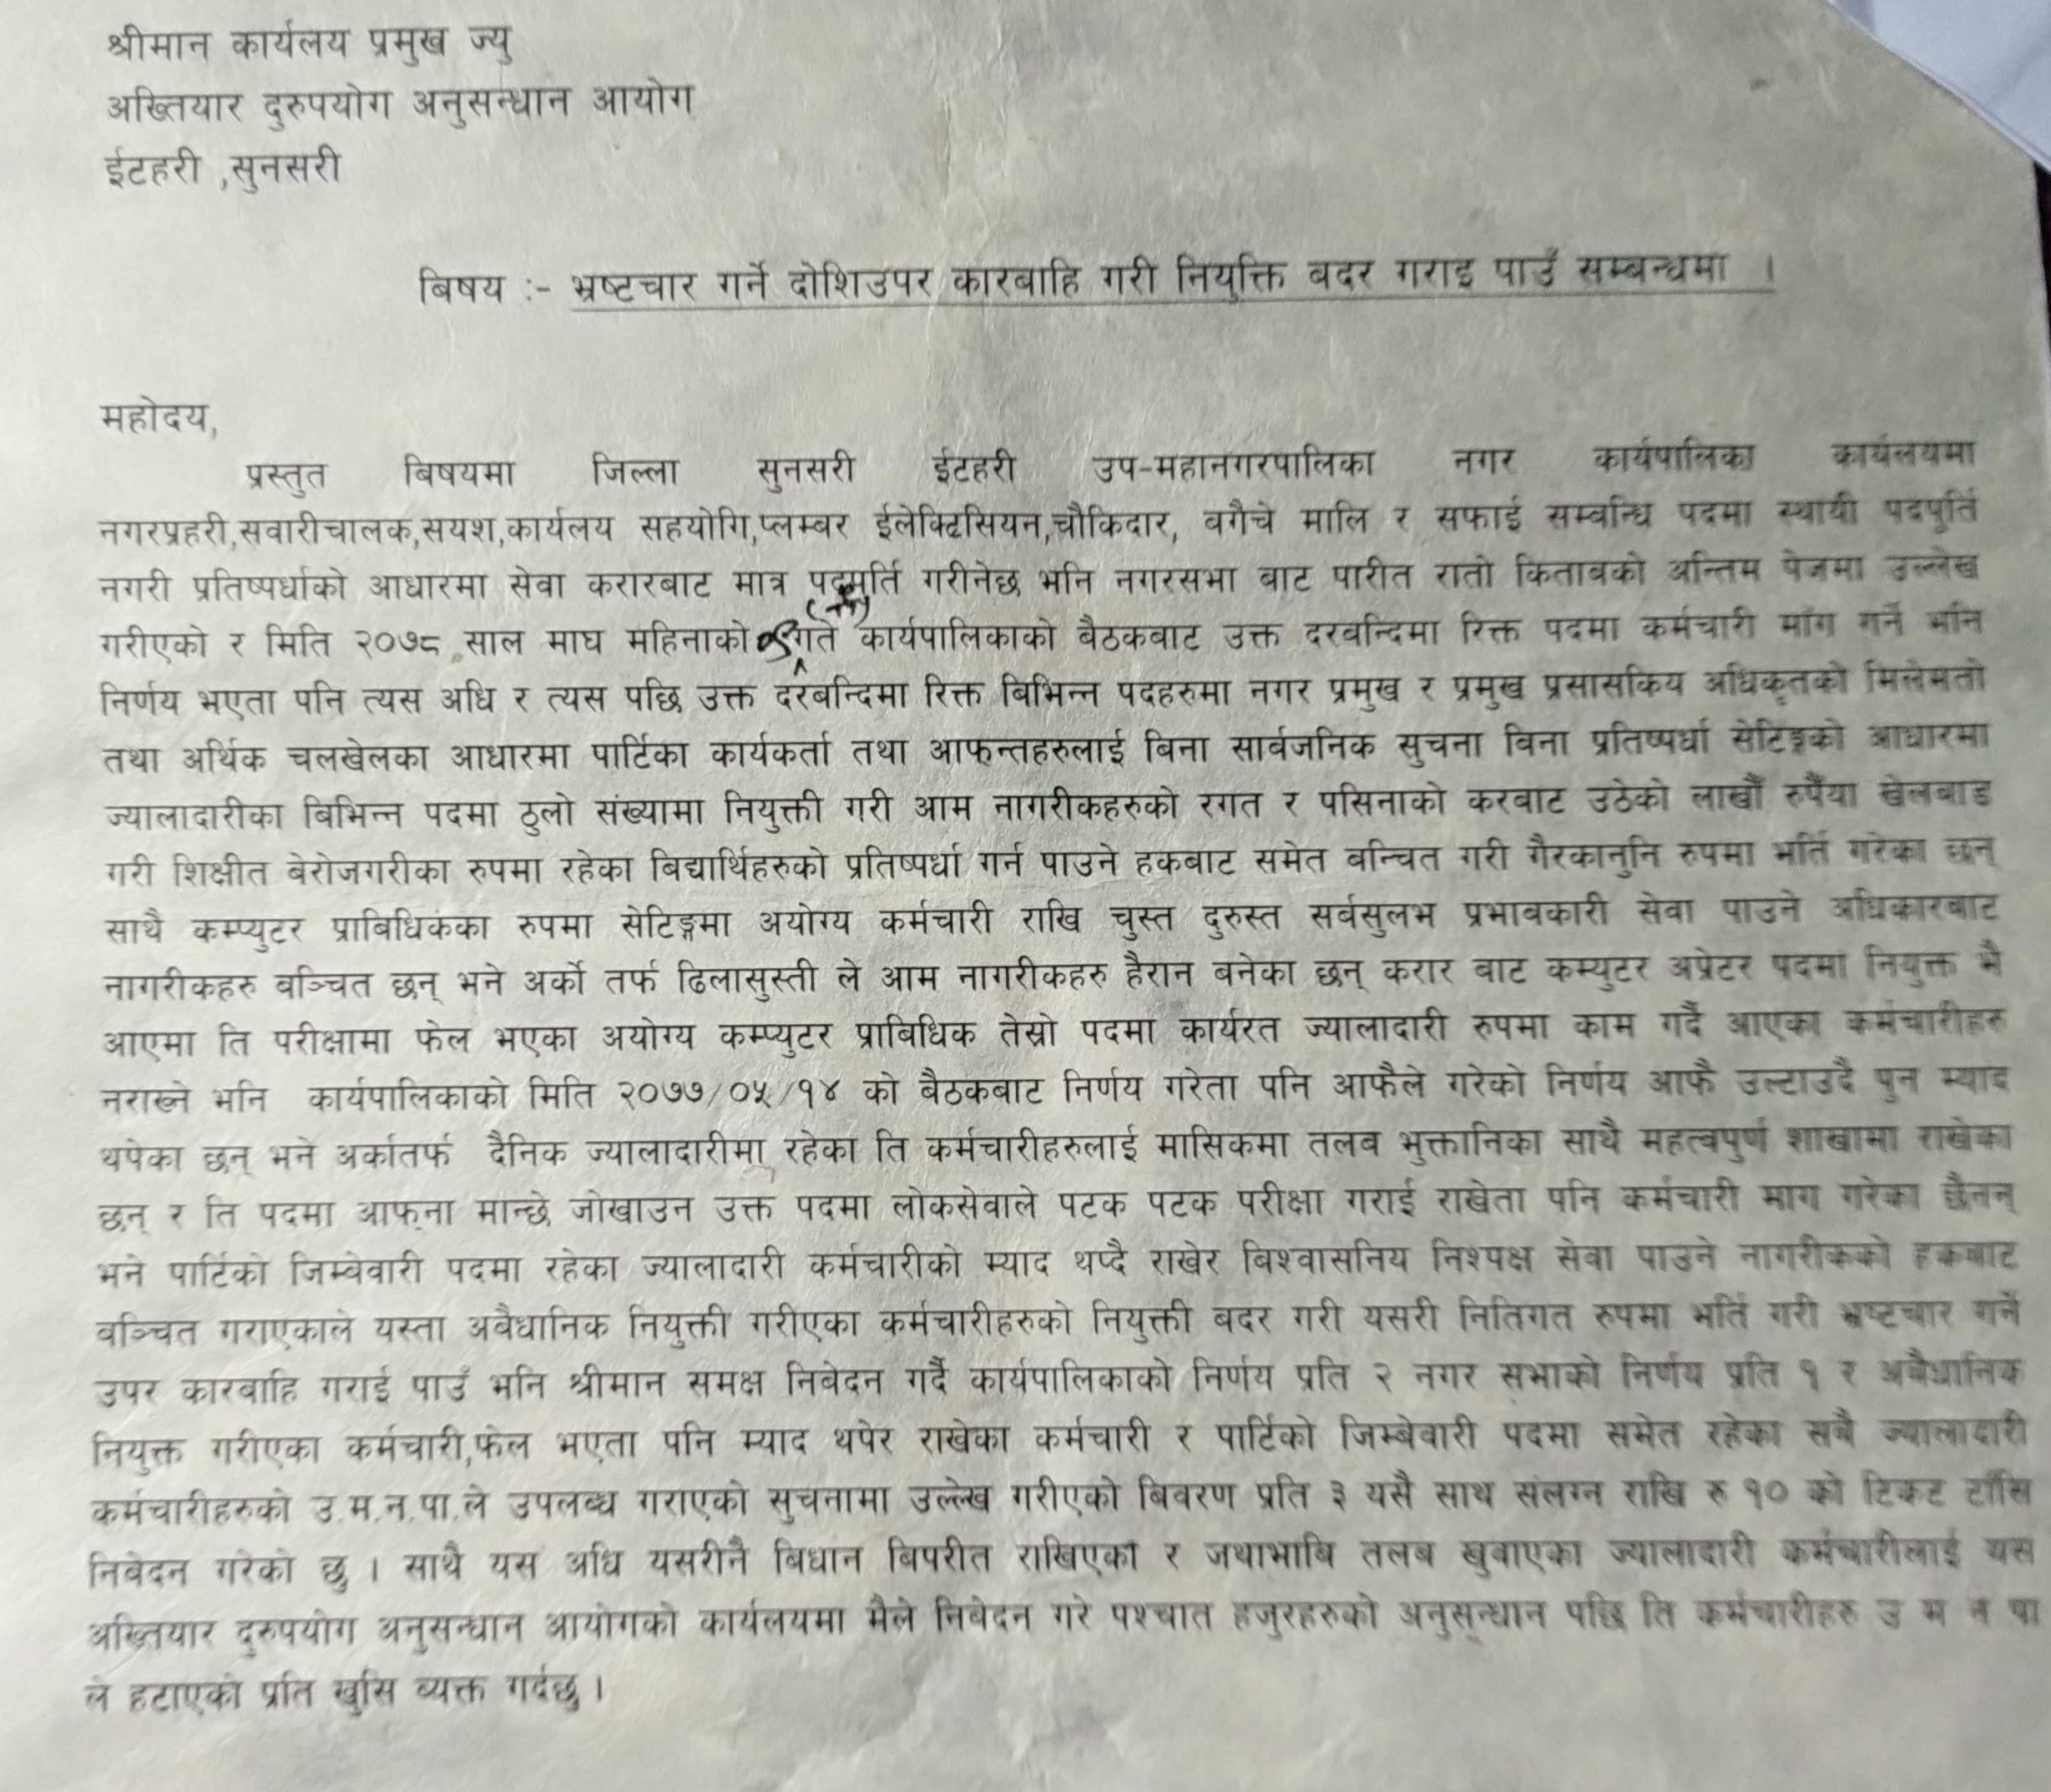 श्रीमान कार्यलय प्रमुख ज्यु
अख्तियार दुरुपयोग अनुसन्धान आयोग
ईटहरी ,सुनसरी
बिषय :- भ्रष्टचार गर्ने दोशिउपर कारबाहि गरी नियुक्ति बदर गराइ पाउँ सम्बन्धमा ।
महोदय,
प्रस्तुत बिषयमा जिल्ला सुनसरी ईटहरी उप-महानगरपालिका नगर कार्यपालिका कार्यलयमा
नगरप्रहरी,सवारीचालक,सयश,कार्यलय सहयोगि,प्लम्बर ईलेक्टिसियन,चौकिदार, वगैचे मालि र सफाई सम्वन्धि पदमा स्थायी पदपुर्ति
नगरी प्रतिष्पर्धाको आधारमा सेवा करारबाट मात्र पदपुर्ति गरीनेछ भनि नगरसभा बाट पारीत रातो किताबको अन्तिम पेजमा उल्लेख
गरीएको र मिति २०७८ साल माघ महिनाको गते कार्यपालिकाको बैठकबाट उक्त दरबन्दिमा रिक्त पदमा कर्मचारी माँग गर्ने भनि
निर्णय भएता पनि त्यस अघि र त्यस पछि उक्त दरबन्दिमा रिक्त बिभिन्न पदहरुमा नगर प्रमुख र प्रमुख प्रसासकिय अधिकृतको मिलेमतो
तथा अर्थिक चलखेलका आधारमा पार्टिका कार्यकर्ता तथा आफन्तहरुलाई बिना सार्वजनिक सुचना बिना प्रतिष्पर्धा सेटिङ्गको आधारमा
ज्यालादारीका बिभिन्न पदमा ठुलो संख्यामा नियुक्ती गरी आम नागरीकहरुको रगत र पसिनाको करबाट उठेको लाखौँ रुपैँया खेलबाड
गरी शिक्षीत बेरोजगरीका रुपमा रहेका बिद्यार्थिहरुको प्रतिष्पर्धा गर्न पाउने हकबाट समेत बन्चित गरी गैरकानुनि रुपमा भर्ति गरेका छन्
साथै कम्प्युटर प्राबिधिकका रुपमा सेटिङ्गमा अयोग्य कर्मचारी राखि चुस्त दुरुस्त सर्वसुलभ प्रभावकारी सेवा पाउने अधिकारबाट
नागरीकहरु बञ्चित छन् भने अर्को तर्फ ढिलासुस्ती ले आम नागरीकहरु हैरान बनेका छन् करार बाट कम्युटर अप्रेटर पदमा नियुक्त भै
आएमा ति परीक्षामा फेल भएका अयोग्य कम्प्युटर प्राबिधिक तेस्रो पदमा कार्यरत ज्यालादारी रुपमा काम गर्दै आएका कर्मचारीहरु
नराख्ने भनि कार्यपालिकाको मिति २०७७/०५/१४ को बैठकबाट निर्णय गरेता पनि आफैले गरेको निर्णय आफै उल्टाउदै पुन म्याद
थपेका छन् भने अर्कातर्फ दैनिक ज्यालादारीमा रहेका ति कर्मचारीहरुलाई मासिकमा तलब भुक्तानिका साथै महत्वपुर्ण शाखामा राखेका
छन् र ति पदमा आफ्ना मान्छे जोखाउन उक्त पदमा लोकसेवाले पटक पटक परीक्षा गराई राखेता पनि कर्मचारी माग गरेका छैनन्
भने पार्टिको जिम्वेवारी पदमा रहेका ज्यालादारी कर्मचारीको म्याद थप्दै राखेर बिश्वासनिय निश्पक्ष सेवा पाउने नागरीकको हकबाट
बञ्चित गराएकाले यस्ता अबैधानिक नियुक्ती गरीएका कर्मचारीहरुको नियुक्ती बदर गरी यसरी नितिगत रुपमा भर्ति गरी भ्रष्टचार गर्ने
उपर कारबाहि गराई पाउँ भनि श्रीमान समक्ष निबेदन गर्दै कार्यपालिकाको निर्णय प्रति २ नगर सभाको निर्णय प्रति १ र अबैधानिक
नियुक्त गरीएका कर्मचारी,फेल भएता पनि म्याद थपेर राखेका कर्मचारी र पार्टिको जिम्बेवारी पदमा समेत रहेका सबै ज्यालादारी
कर्मचारीहरुको उ.म.न.पा.ले उपलब्ध गराएको सुचनामा उल्लेख गरीएको बिवरण प्रति ३ यसै साथ संलग्न राखि रु १० को टिकट टाँसि
निबेदन गरेको छु । साथै यस अघि यसरीनै बिधान बिपरीत राखिएका र जथाभाबि तलब खुवाएका ज्यालादारी कर्मचारीलाई यस
अख्तियार दुरुपयोग अनुसन्धान आयोगको कार्यलयमा मैले निबेदन गरे पश्चात हजुरहरुको अनुसन्धान पछि ति कर्मचारीहरु उ म न पा
ले हटाएको प्रति खुसि व्यक्त गर्दछु ।